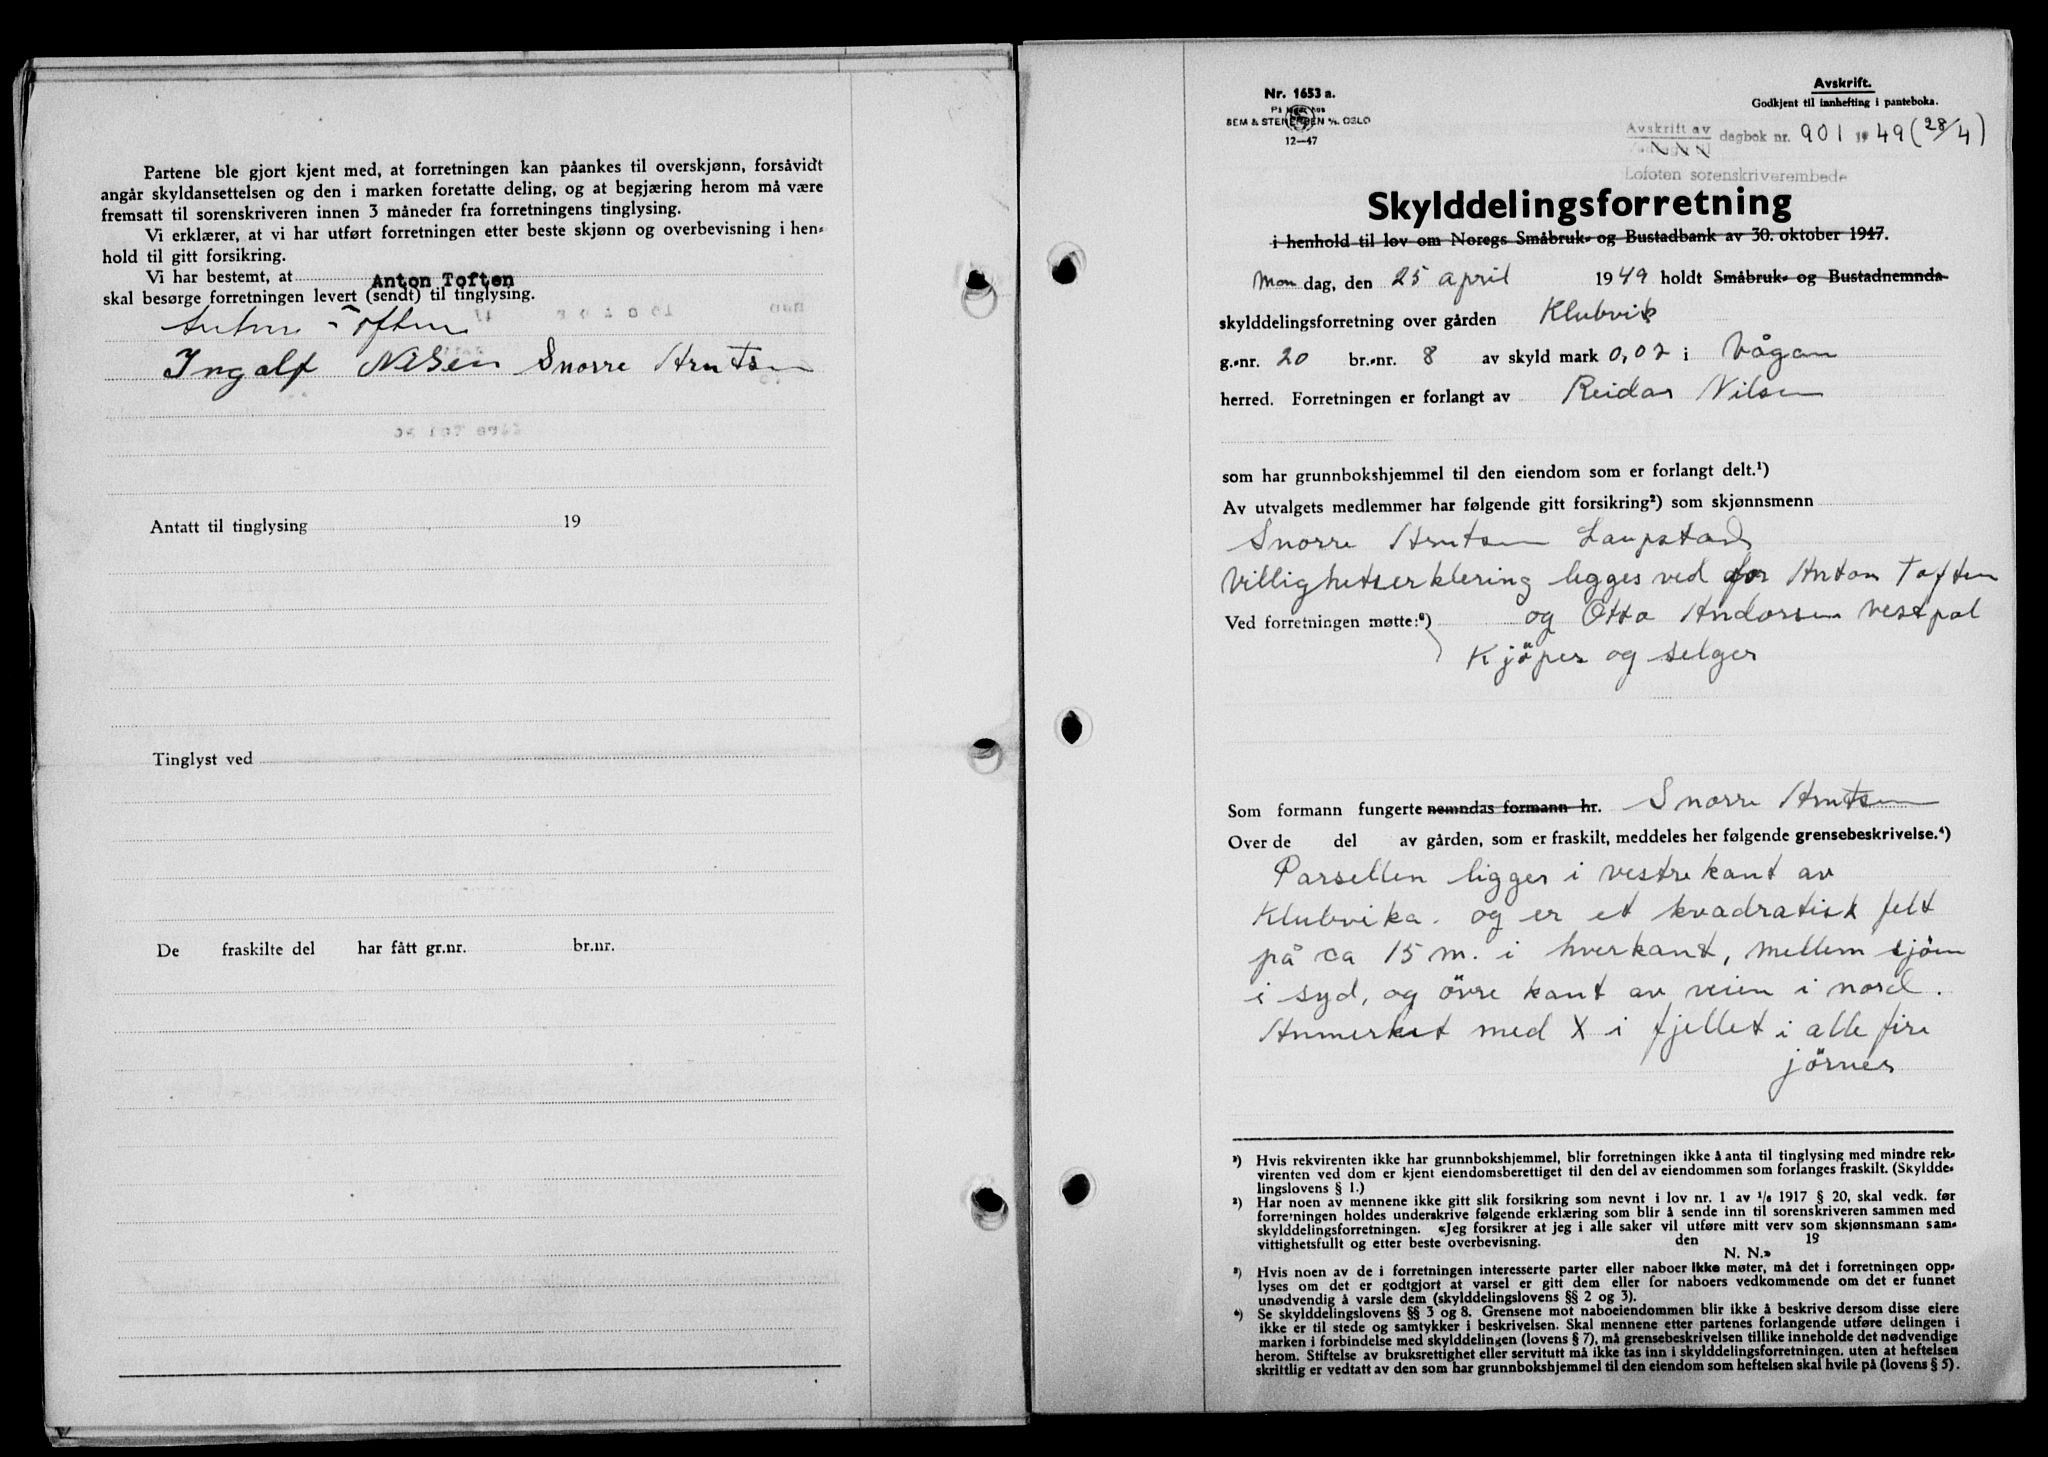 Partene ble gjort kjent med, at forretningen kan påankes til overskjønn, forsåvidt
angår skyldansettelsen og den i marken foretatte deling, og at begjæring herom må være
fremsatt til sorenskriveren innen 3 måneder fra forretningens tinglysing.
Vi erklærer, at vi har utført forretningen etter beste skjønn og overbevisning i hen-
hold til gitt forsikring.
Vi har bestemt, at Anton Toften
skal besørge forretningen levert (sendt) til tinglysing.
Anton Toften
Ingolf Nilsen Snorre Arntsen
Antatt til tinglysing 19
Tinglyst ved
De fraskilte del har fått gr.nr. br.nr.
Nr. 1653 a.
På lager hos
SEM & STENERSEN A/S OSLO
12—47
Avskrift.
Godkjent til innhefting i panteboka.
Avskrift av dagbok nr. 901 1949 (28/4)
Lofoten sorenskriverembede
Skylddelingsforretning
i henhold til lov om Noregs Småbruk- og Bustadbank av 30. oktober 1947.
Mondag, den 25 april 1949 holdt Småbruk- og Bustadnemnda
skylddelingsforretning over gården Klubvik
g.-nr. 20 br.-nr. 8 av skyld mark 0,02 i Vågan
herred. Forretningen er forlangt av Reidar Nilsen
som har grunnbokshjemmel til den eiendom som er forlangt delt.¹)
Av utvalgets medlemmer har følgende gitt forsikring²) som skjønnsmenn
Snorre Arntsen Laupstad
Villighetserklering ligges ved for Anton Toften
Ved forretningen møtte:³) og Otto Andorsen Vestpol
Kjöper og selger
Som formann fungerte nemndas formann hr. Snorre Arntsen
Over de del av gården, som er fraskilt, meddeles her følgende grensebeskrivelse.⁴)
Parsellen ligger i vestre kant av
Klubvika. og er et kvadratisk felt
på ca 15 m. i hverkant, mellem sjöen
i syd, og övre kant av veien i nord.
Anmerket med X i fjellet i alle fire
jörner
¹) Hvis rekvirenten ikke har grunnbokshjemmel, blir forretningen ikke å anta til tinglysing med mindre rek-
virenten ved dom er kjent eiendomsberettiget til den del av eiendommen som forlanges fraskilt. (Skyldde-
lingslovens § 1.)
²) Har noen av mennene ikke gitt slik forsikring som nevnt i lov nr. 1 av 1/6 1917 § 20, skal vedk. før
forretningen holdes underskrive følgende erklæring som blir å sende inn til sorenskriveren sammen med
skylddelingsforretningen. «Jeg forsikrer at jeg i alle saker vil utføre mitt verv som skjønnsmann sam-
vittighetsfullt og etter beste overbevisning. den 19
N. N.»
³) Hvis noen av de i forretningen interesserte parter eller naboer ikke møter, må det i forretningen opp-
lyses om det er godtgjort at varsel er gitt dem eller for naboers vedkommende om det er funnet
unødvendig å varsle dem (skylddelingslovens §§ 2 og 3).
⁴) Se skylddelingslovens §§ 3 og 8. Grensene mot naboeiendommen blir ikke å beskrive dersom disse eiere
ikke er til stede og samtykker i beskrivelsen. Skal mennene etter partenes forlangende utføre delingen i
marken i forbindelse med skylddelingen (lovens § 7), må grensebeskrivelsen tillike inneholde det nødvendige
herom. Stiftelse av bruksrettighet eller servitutt må ikke tas inn i skylddelingsforretningen, uten at heftelsen
skriftlig er vedtatt av den som har grunnbokshjemmel til den eiendom som heftelsen skal hvile på (lovens § 5).